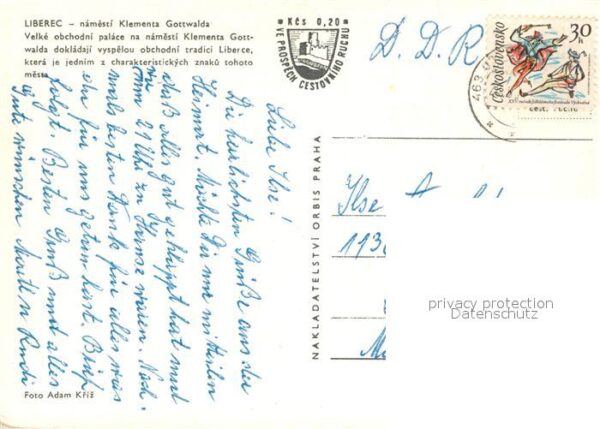 LIBEREC – náměstí Klementa Gottwalda
Velké obchodní paláce na náměstí Klementa Gott-
walda dokládají vyspělou obchodní tradici Liberce,
která je jedním z charakteristických znaků tohoto
města
Kčs 0,20
VE PROSPĚCH CESTOVNÍHO RUCHU
D. D. R
Československo
30 h
463
Liebe Ilse!
Die herzlichsten Grüße aus der
Heimat. Möchte Dir nur mitteilen
daß alles gut geklappt hat und
wir um 21 Uhr zu Hause waren. Noch-
mals besten Dank für alles was
du für uns getan hast. Brief
folgt. Besten Gruß und alles
Gute wünschen Mardl u Rudi
Ilse
113
NAKLADATELSTVÍ ORBIS PRAHA
privacy protection
Datenschutz
Foto Adam Kříž